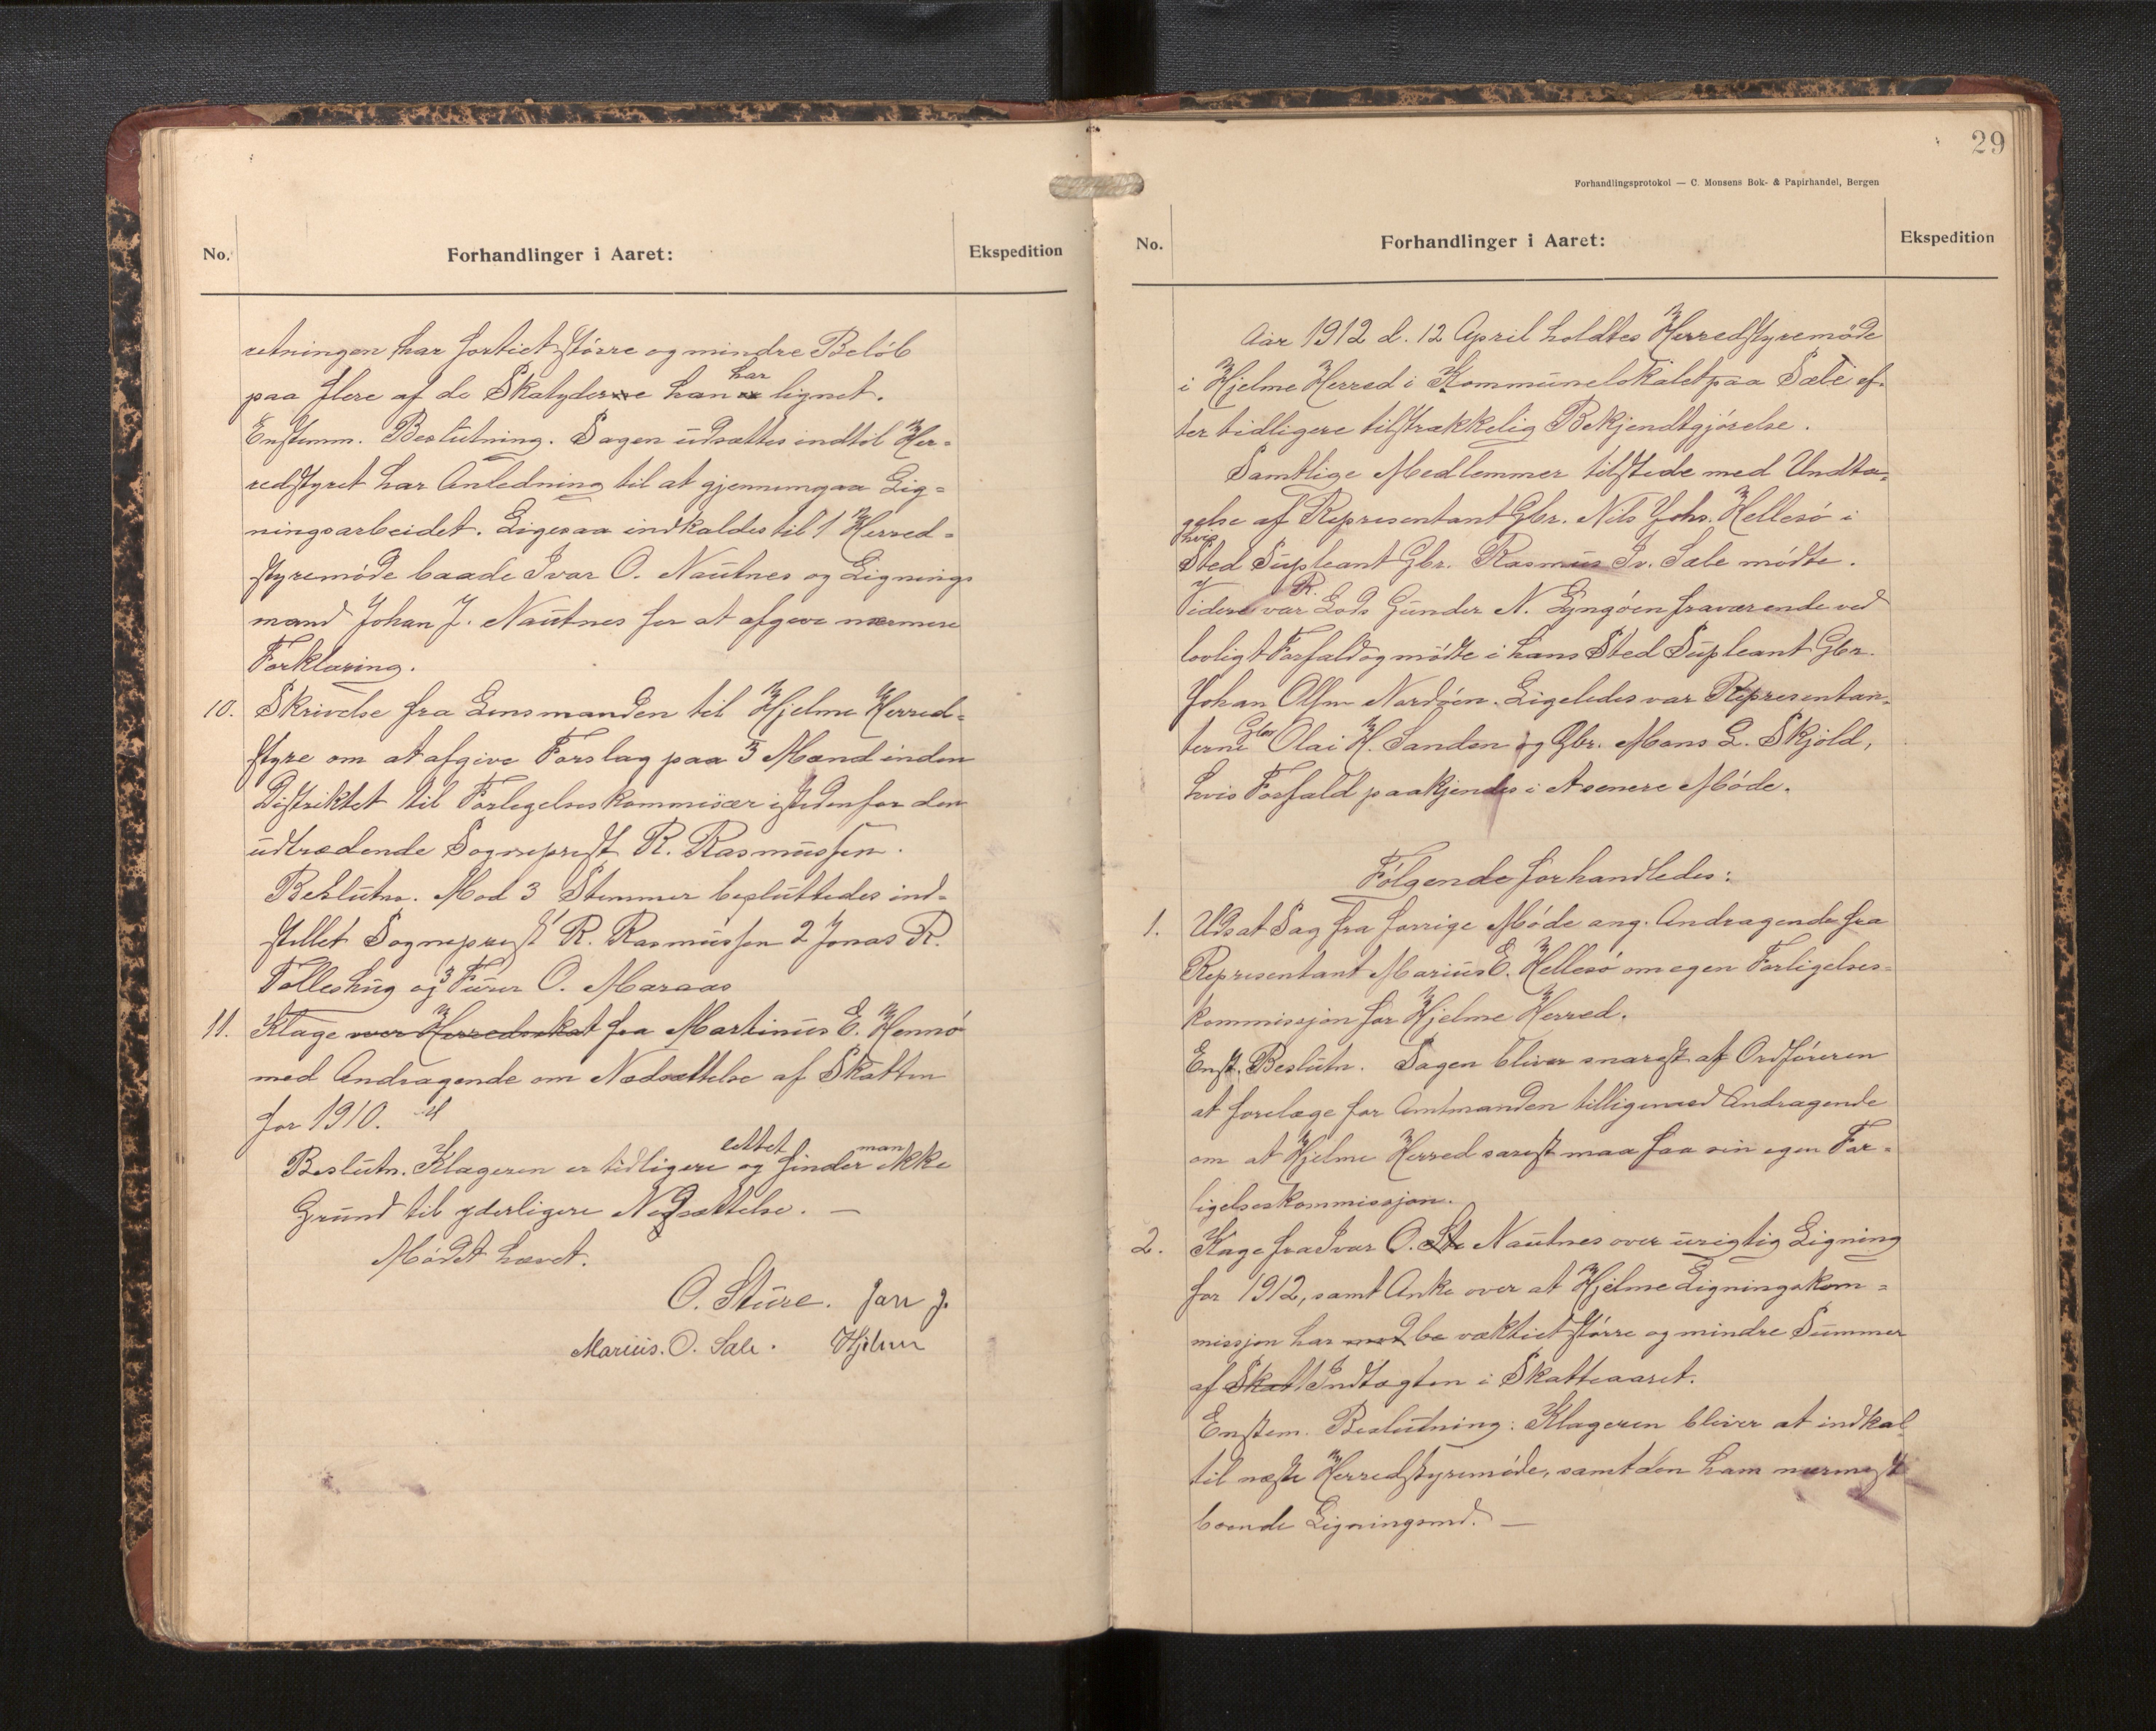 No.
Forhandlinger i Aaret:
Ekspedition
retningen har fortiet större og mindre Belöb
paa flere af de Skatydere han har lignet.
Enstemm. Beslutning. Sagen udsættes indtil Her-
redstyret har Anledning til at gjennemgaa Lig-
ningsarbeidet. Ligesaa indkaldes til 1 Herred-
styremöde baade Ivar O. Nautnes og Lignings
mand Johan J. Nautnes for at afgive nærmere
Forklaring.
10. Skrivelse fra Lensmanden til Hjelme Herred-
styre om at afgive Forslag paa 3 Mænd inden
Distriktet til Forlegelseskommisær istedenfor den
udtrædende Sogneprest R. Rasmussen.
Beslutn. Mod 3 Stemmer besluttedes ind-
stillet Sogneprest R. Rasmussen 2 Jonas R.
Tolleshug og 3 Furer O. Maraas
11. Klage over Herredsskat fra Martinus E. Hennö
med Andragende om Nedsættelse af Skatten
for 1910.
Beslutn. Klageren er tidligere lettet og finder man ikke
Grund til yderligere Nedsættelse. —
Mödet hævet.
O. Sture. Jan J.
Marius. O. Sæle. Hjelme
29
Forhandlingsprotokol — C. Monsens Bok- & Papirhandel, Bergen
No.
Forhandlinger i Aaret:
Ekspedition
Aar 1912 d. 12 April holdtes Herredstyremöde
i Hjelme Herred i Kommunelokalet paa Sæle ef-
ter tidligere tilstrækkelig Bekjendtgjörelse.
Samtlige Medlemmer tilstede med Undta-
gelse af Representant Gbr. Nils Johs. Hellesö i
hvis
Sted Supleant Gbr. Rasmus Iv. Sæle mödte.
Videre var R. Lods Gunder N. Lyngöen fraværende ved
lovligt Forfald og mödte i hans Sted Supleant Gbr.
Johan Olsen Nordöen. Ligeledes var Representan-
terne Gbr Olai H. Sanden og Gbr. Mons L. Skjold,
hvis Forfald paakjendes i et senere Möde.
Fölgende forhandledes:
1. Udsat Sag fra forrige Möde ang. Andragende fra
Representant Marius E. Hellesö om egen Forligelses-
kommissjon for Hjelme Herred.
Enst. Beslutn. Sagen bliver snarest af Ordföreren
at forelæge for Amtmanden tilligemed Andragende
om at Hjelme Herred sarest maa faa sin egen For-
ligelseskommissjon.
2. Kage fra Ivar O. Nautnes over urigtig Ligning
for 1912, samt Anke over at Hjelme Ligningskom-
missjon har med be væktiet större og mindre Summer
af Skatt Indtægten i Skatteaaret.
Enstem. Beslutning: Klageren bliver at indkal
til næste Herredstyremöde, samt den ham nærmest
boende Ligningsmd. —